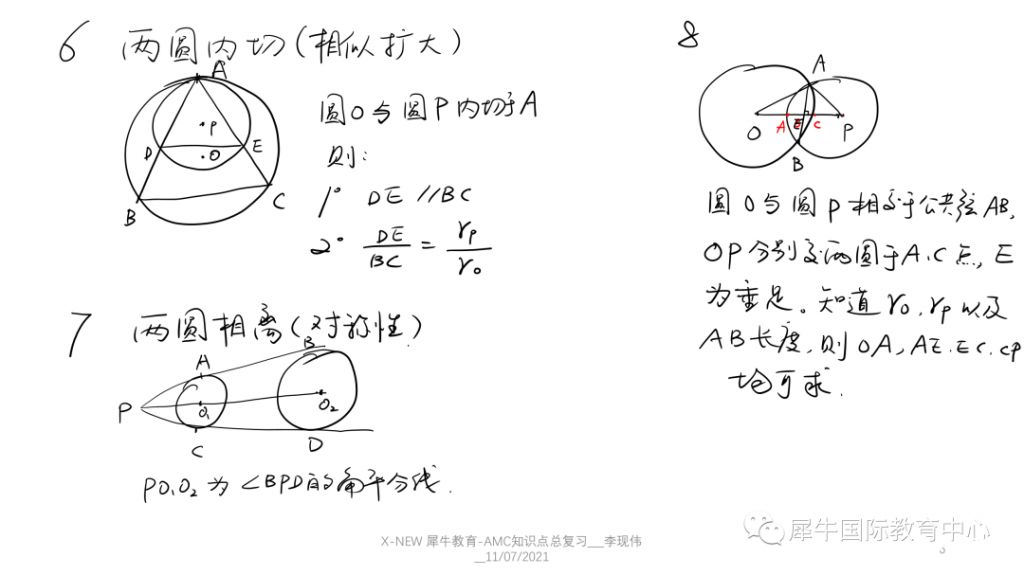 6 两圆内切(相似扩大)
A
P
O
D
E
B
C
圆O与圆P内切于A
则:
1° DE//BC
2° DE/BC = rₚ/r₀
7 两圆相离(对称性)
A
B
P
O₁
O₂
C
D
PO₁O₂为∠BPD的角平分线.
8
A
O
A
E
C
P
B
圆O与圆P相交于公共弦AB,
OP分别交两圆于A.C点, E
为垂足。知道r₀.rₚ以及
AB长度,则OA,AE.EC.CP
均可求.
犀牛国际教育中心
X-NEW 犀牛教育-AMC知识点总复习__李现伟
__11/07/2021